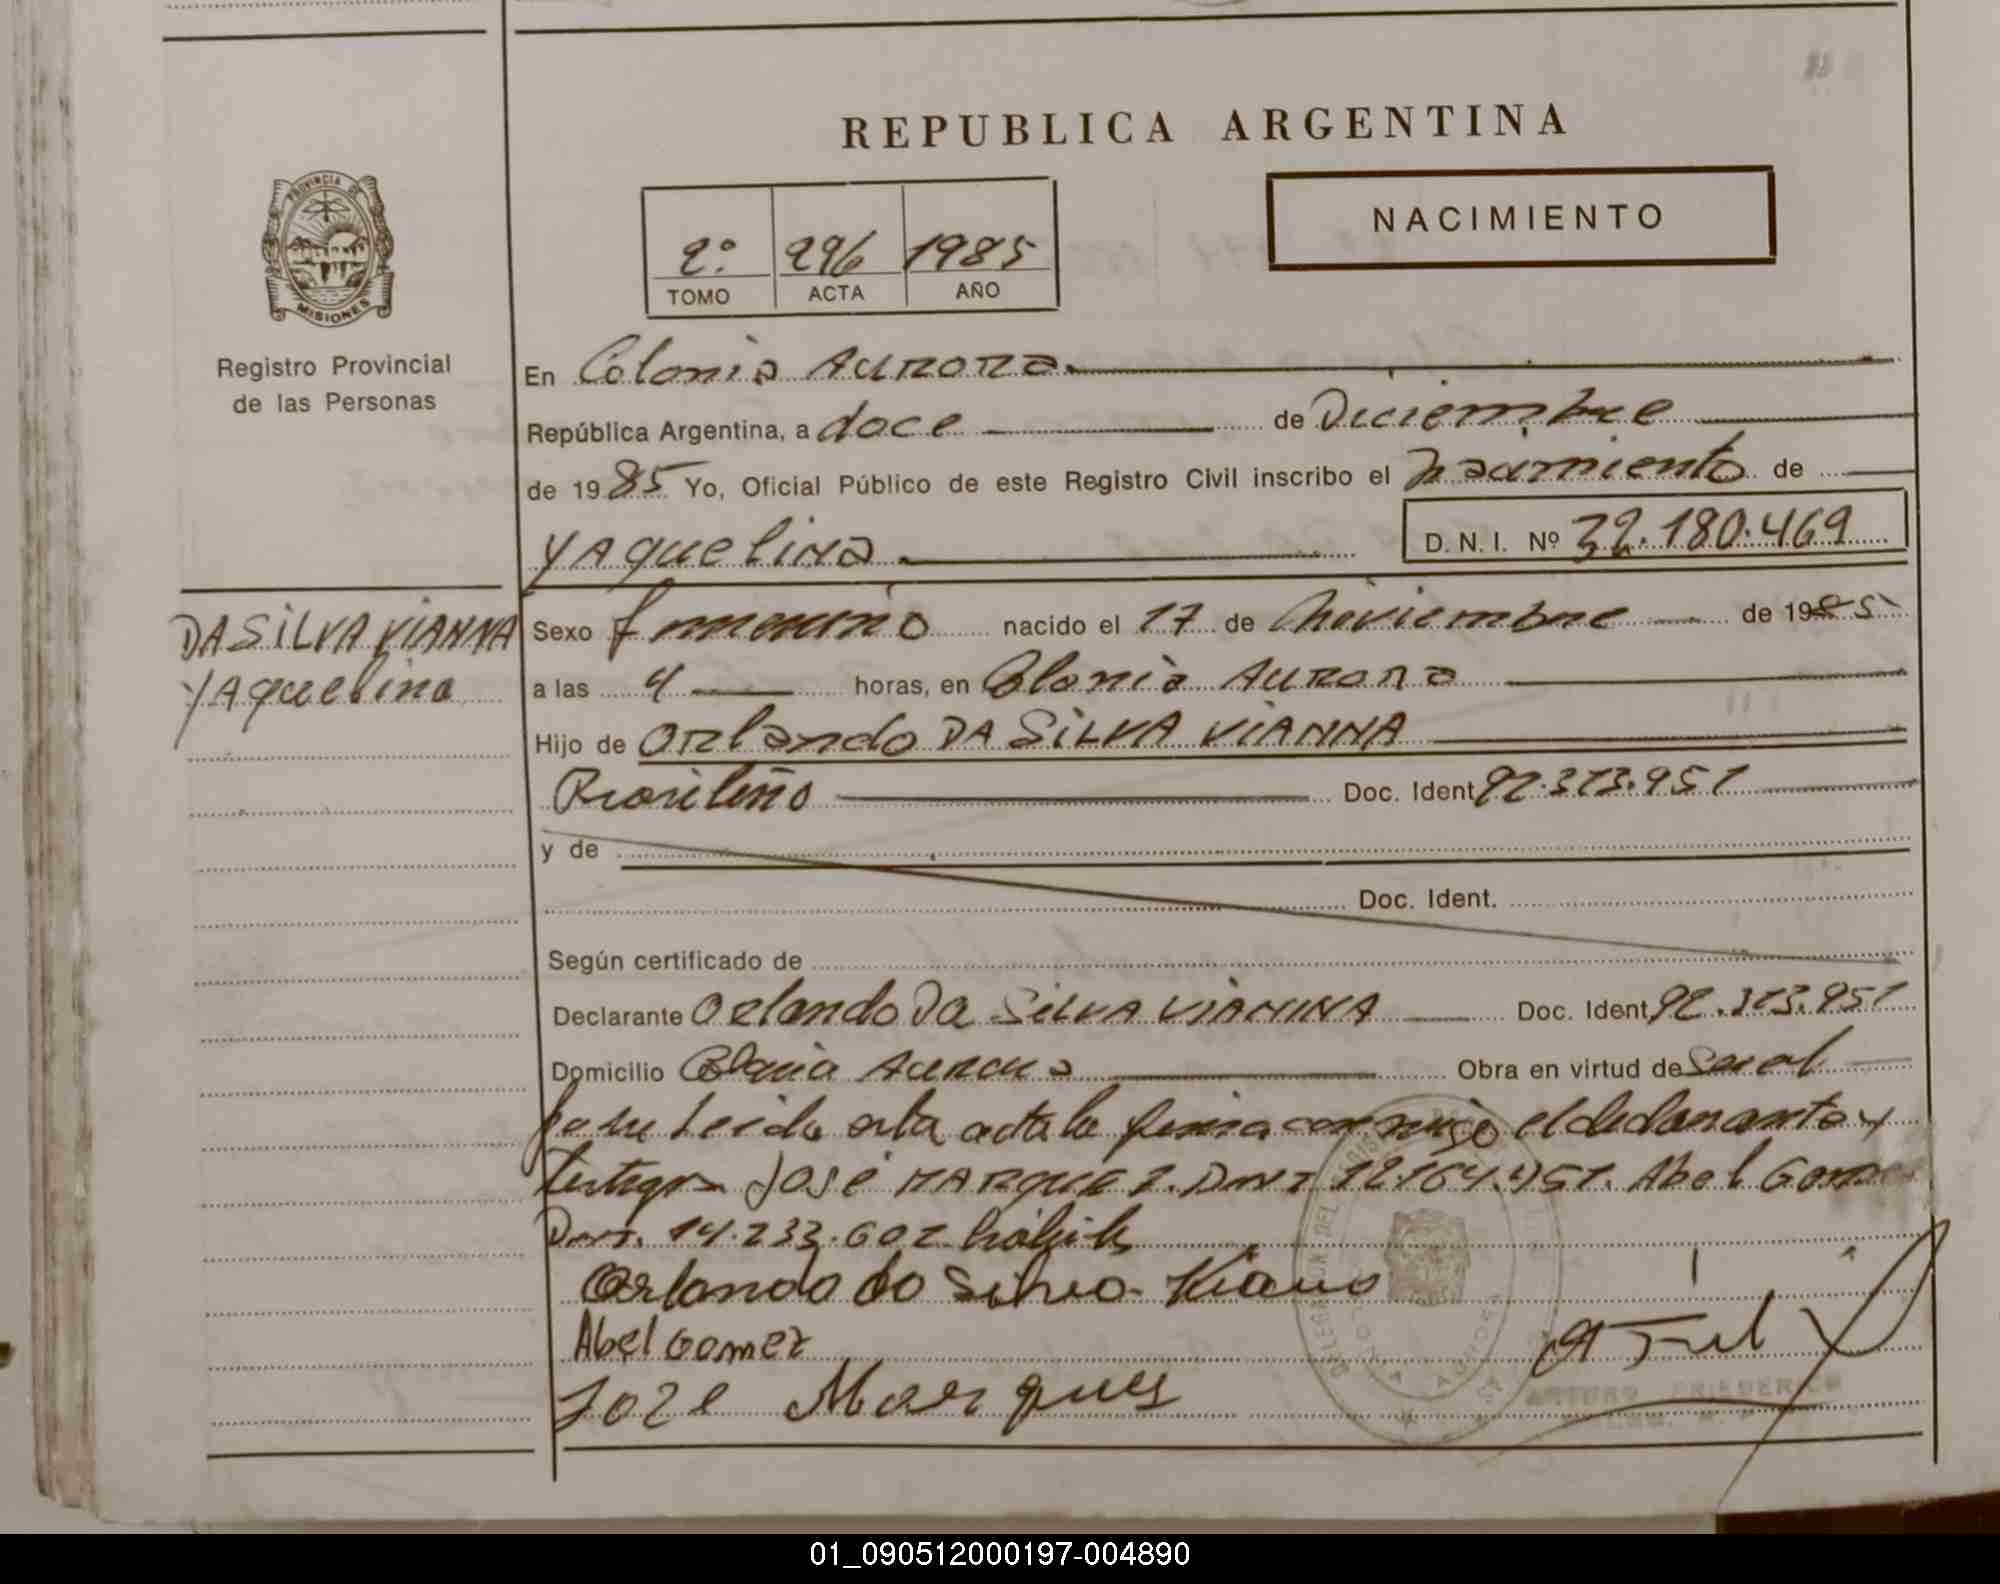 REPUBLICA ARGENTINA
NACIMIENTO
2º 296 1985
TOMO ACTA AÑO
PROVINCIA DE
MISIONES
Registro Provincial
de las Personas
En Colonia Aurora
República Argentina, a doce de Diciembre
de 1985 Yo, Oficial Público de este Registro Civil inscribo el nacimiento de
Yaquelina D. N. I. Nº 32.180.469
DA SILVA VIANNA
Yaquelina
Sexo femenino nacido el 17 de Noviembre de 1985
a las 4 horas, en Colonia Aurora
Hijo de Orlando DA SILVA VIANNA
Brasileño Doc. Ident. 92.313.951
y de
Doc. Ident.
Según certificado de
Declarante Orlando Da SILVA VIANNA Doc. Ident. 92.313.951
Domicilio Colonia Aurora Obra en virtud de
Leida esta acta la firma conmigo el declarante y
testigos José MARQUEZ. DNI 12.164.451. Abel Gomez
DNI. 14.233.602
Orlando da Silva Viana
Abel Gomez
Joze Marques
ARTURO FRIEDERICH
01_090512000197-004890